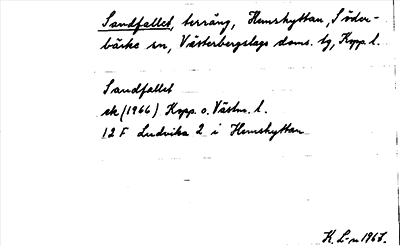 Sandfallet, terräng, Hemshyttan, Söder-
bärke sn, Västerbergslags doms. tg, Kopp. l.
Sandfallet
ek (1966) Kopp. o. Västm. l.
12 F Ludvika 2 i Hemshyttan
K. L-n 1967.